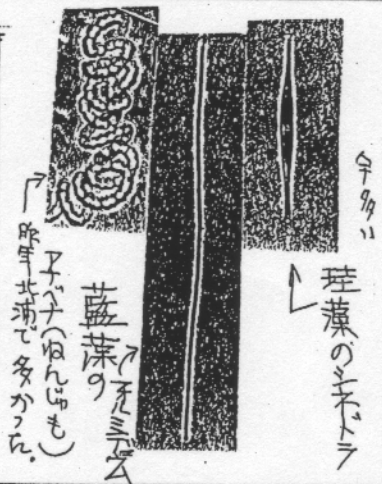 今多い
珪藻のシネドラ
藍藻の
アナベナ(ねんじゅも)
昨年北浦で多かった。